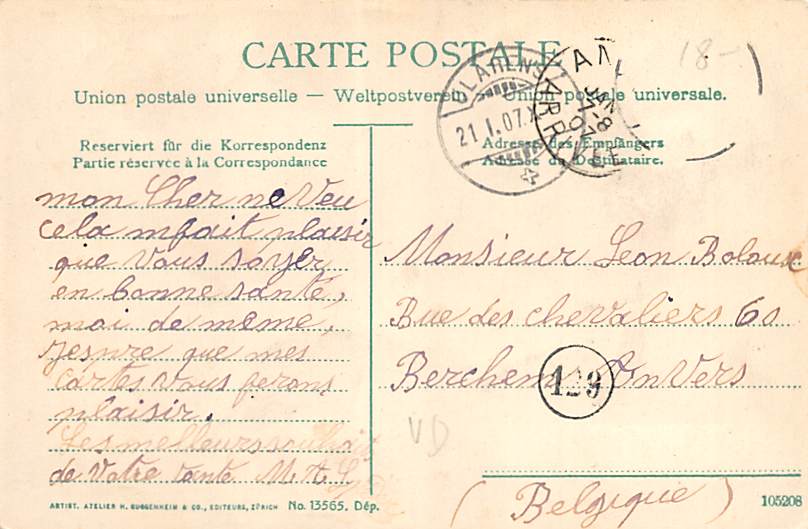 CARTE POSTALE
Union postale universelle — Weltpostverein — Union postale universale.
CLARENS
21.I.07.X
ARR
Reserviert für die Korrespondenz
Partie réservée à la Correspondance
Adresse des Empfängers
Adresse du Destinataire.
18-
mon Cher neveu
cela m fait plaisir
que vous soyer
en bonne santé,
moi de même,
jespire que mes
cartes vous ferons
plaisir.
Les meilleurs souhait
de votre tante M. A. L
Monsieur Leon
Rue des chevaliers 60
Berchem Anvers
(Belgique)
VD
ARTIST. ATELIER H. GUGGENHEIM & CO., EDITEURS, ZÜRICH No. 13565. Dép.
105208